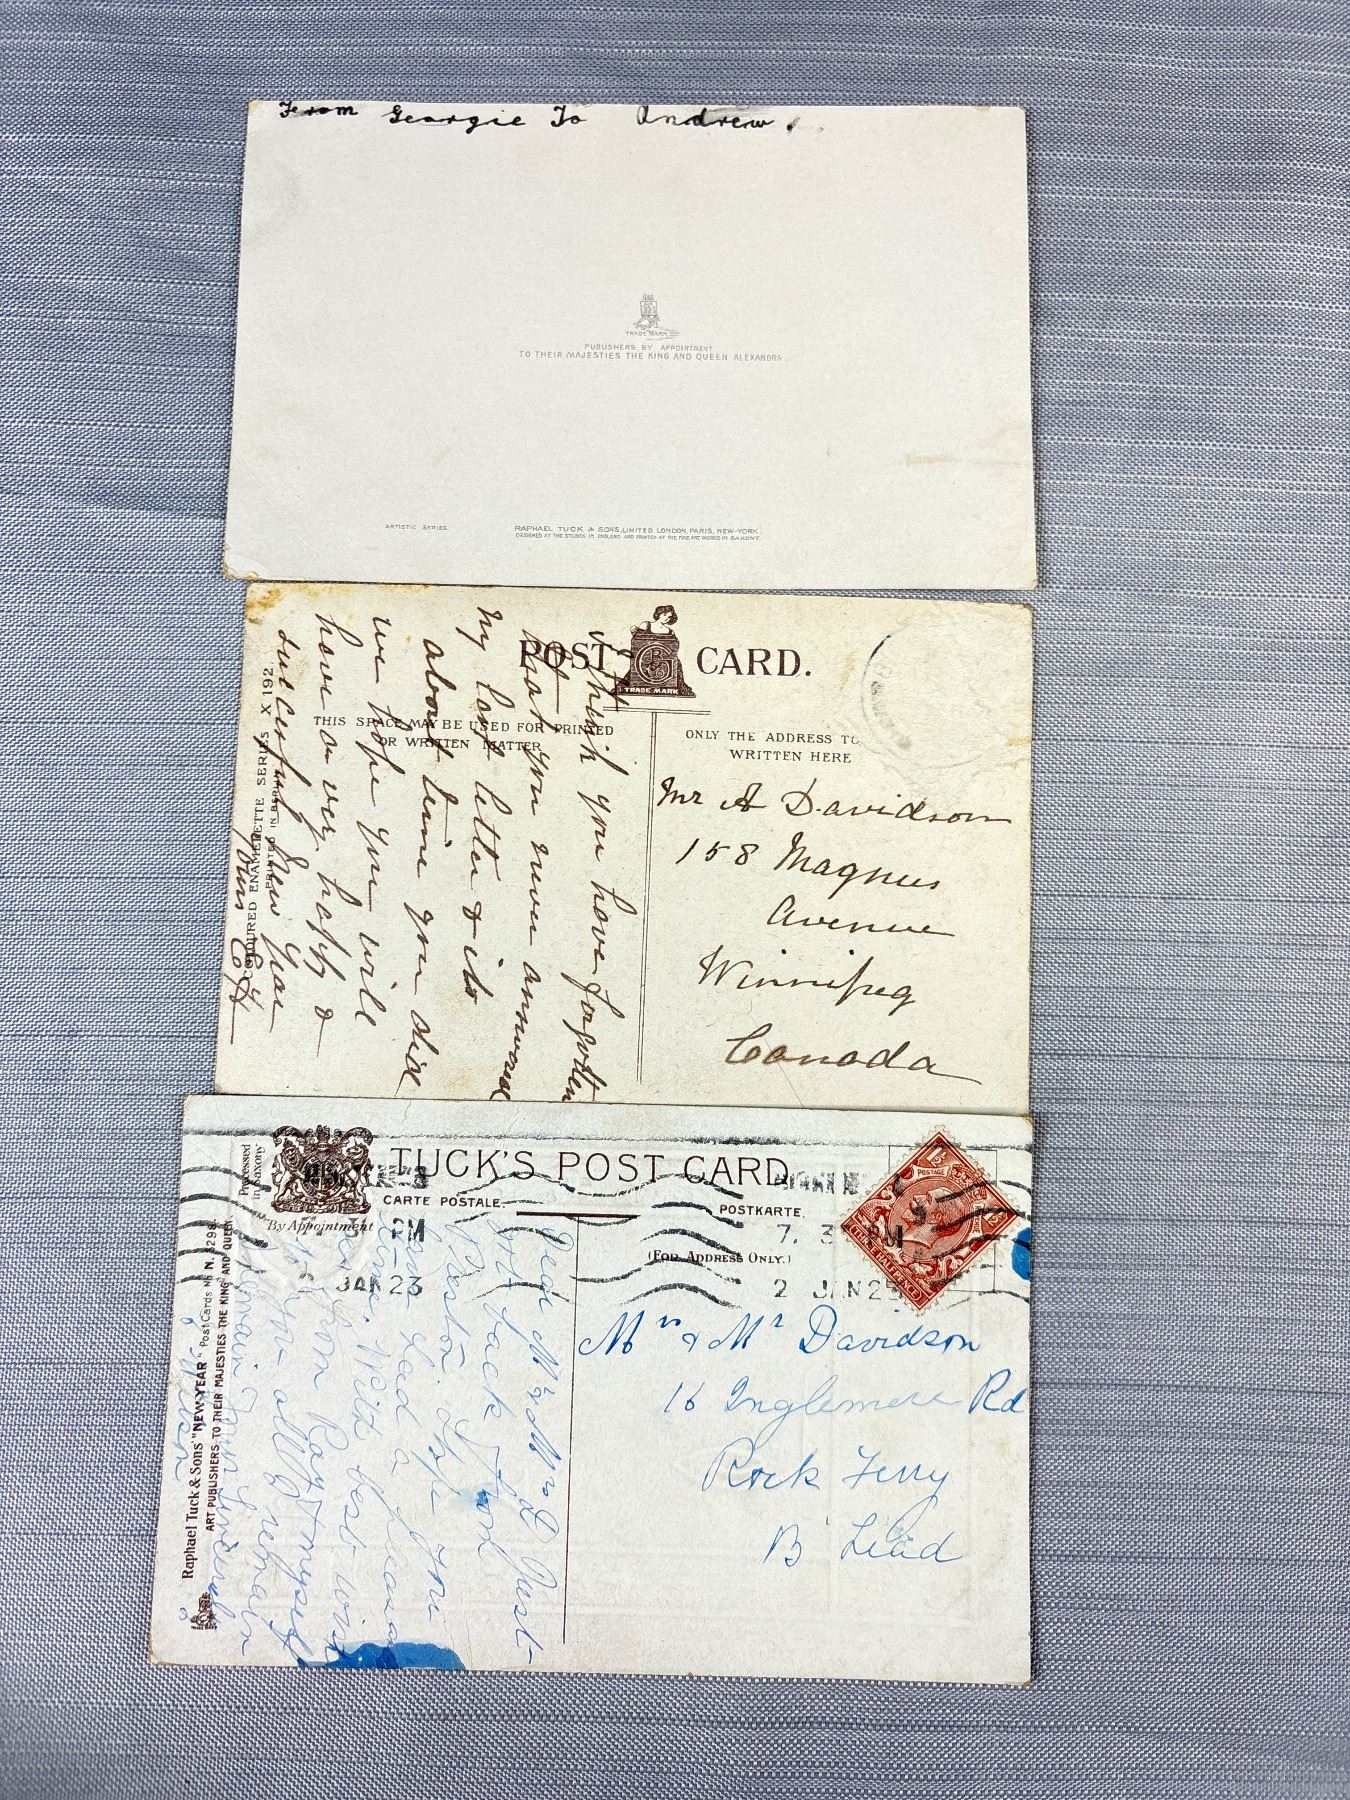 From Georgie To Andrew.
TRADE MARK
PUBLISHERS BY APPOINTMENT
TO THEIR MAJESTIES THE KING AND QUEEN ALEXANDRA.
ARTISTIC SERIES.
RAPHAEL TUCK & SONS, LIMITED. LONDON, PARIS, NEW-YORK.
DESIGNED AT THE STUDIOS IN ENGLAND AND PRINTED AT THE FINE ART WORKS IN SAXONY.
POST CARD.
G
TRADE MARK
THIS SPACE MAY BE USED FOR PRINTED
OR WRITTEN MATTER
ONLY THE ADDRESS TO
WRITTEN HERE
COLOURED ENAMELETTE SERIES X 192.
PRINTED IN BERLIN
I think you have forgotten
that you never answered
my last letter & its
about time you did
we hope you will
have a very happy &
successful New Year
Yours
Mr A Davidson
158 Magnus
Avenue
Winnipeg
Canada
Processed
in Saxony
By Appointment
TUCK'S POST CARD
CARTE POSTALE.
POSTKARTE.
(FOR ADDRESS ONLY.)
PM
JAN 23
7. 3 PM
2 JAN 23
POSTAGE
THREE HALFPENCE
Raphael Tuck & Sons' "NEW YEAR" Post Cards
ART PUBLISHERS TO THEIR MAJESTIES THE KING AND QUEEN.
Dear Mr & Mrs D Just
got back from
Preston Hope you
have had a pleasant
time. With best wish
from Ray & myself
for all I remain
Mrs & Mr Davidson
16 Inglemere Rd
Rock Ferry
B'Head